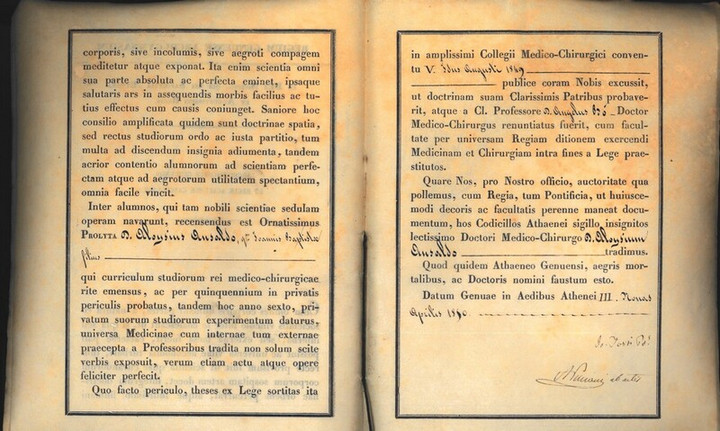 corporis, sive incolumis, sive aegroti compagem
meditetur atque exponat. Ita enim scientia omni
sua parte absoluta ac perfecta eminet, ipsaque
salutaris ars in assequendis morbis facilius ac tu-
tius effectus cum causis coniunget. Saniore hoc
consilio amplificata quidem sunt doctrinae spatia,
sed rectus studiorum ordo ac iusta partitio, tum
multa ad discendum insignia adiumenta, tandem
acrior contentio alumnorum ad scientiam perfe-
ctam atque ad aegrotorum utilitatem spectantium,
omnia facile vincit.
Inter alumnos, qui tam nobili scientiae sedulam
operam navarunt, recensendus est Ornatissimus
PROLYTA D. Aloysius Ansaldo, Ioannis Baptistae
filius
qui curriculum studiorum rei medico-chirurgicae
rite emensus, ac per quinquennium in privatis
periculis probatus, tandem hoc anno sexto, pri-
vatum suorum studiorum experimentum daturus,
universa Medicinae cum internae tum externae
praecepta a Professoribus tradita non solum scite
verbis exposuit, verum etiam actu atque opere
feliciter perfecit.
Quo facto periculo, theses ex Lege sortitas ita
in amplissimi Collegii Medico-Chirurgici conven-
tu V. Idus Augusti 1849
publice coram Nobis excussit,
ut doctrinam suam Clarissimis Patribus probave-
rit, atque a Cl. Professore D. Angelus Bò Doctor
Medico-Chirurgus renuntiatus fuerit, cum facul-
tate per universam Regiam ditionem exercendi
Medicinam et Chirurgiam intra fines a Lege prae-
stitutos.
Quare Nos, pro Nostro officio, auctoritate qua
pollemus, cum Regia, tum Pontificia, ut huiusce-
modi decoris ac facultatis perenne maneat docu-
mentum, hos Codicillos Athenaei sigillo insignitos
lectissimo Doctori Medico-Chirurgo D. Aloysium
Ansaldo tradimus.
Quod quidem Athaeneo Genuensi, aegris mor-
talibus, ac Doctoris nomini faustum esto.
Datum Genuae in Aedibus Athenei III. Nonas
Aprilis 1850